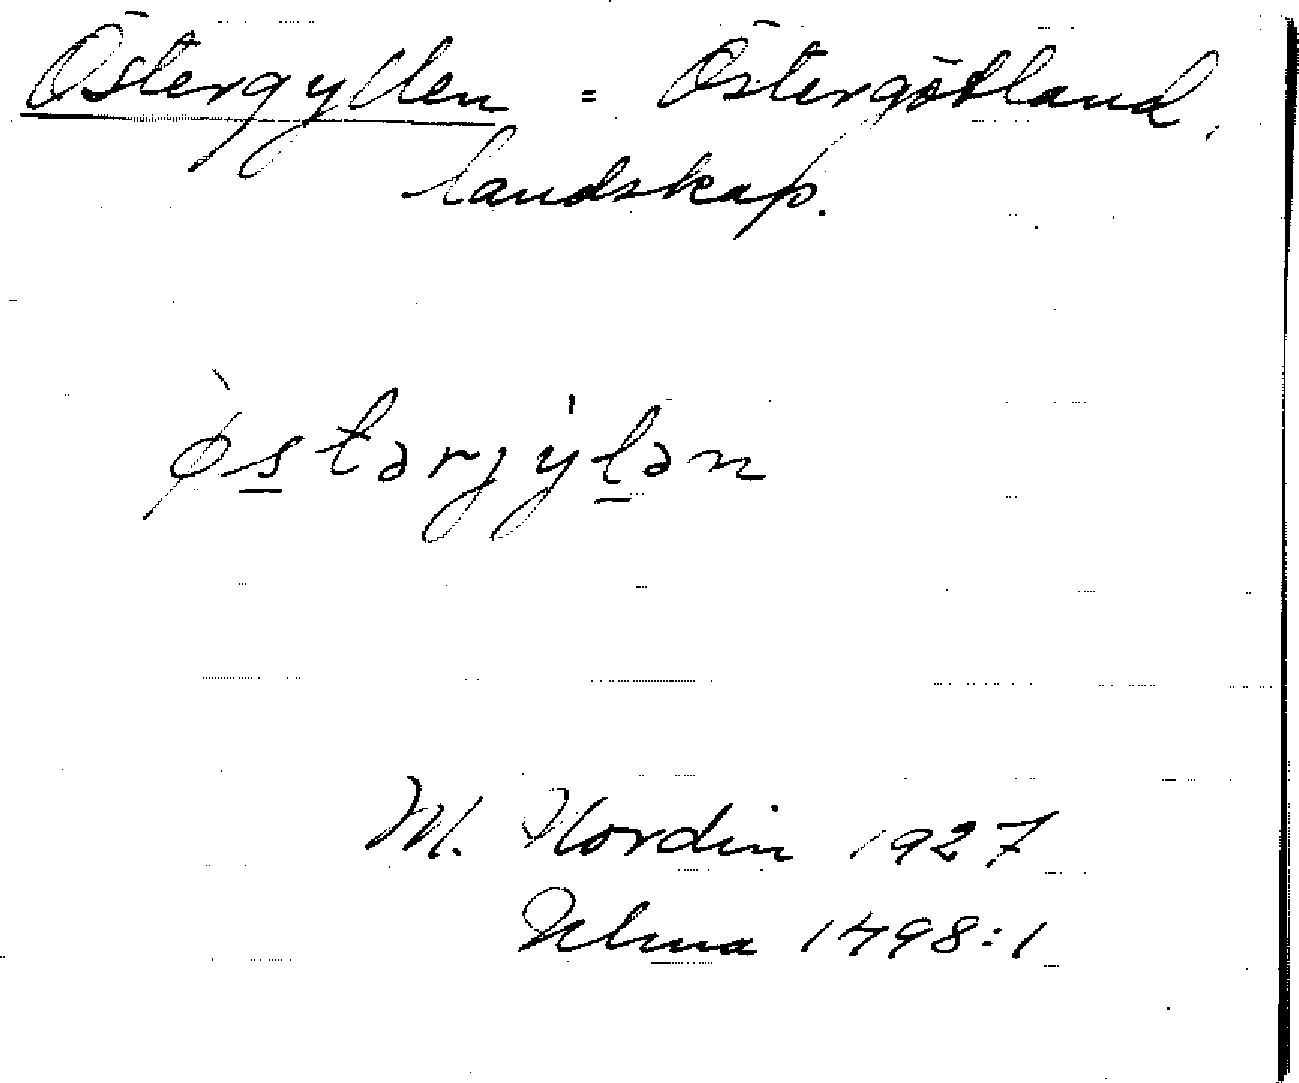 Östergyllen = Östergötland,
landskap.
ø̀stərjýlən
M. Nordin 1927
Ulma 1498:1